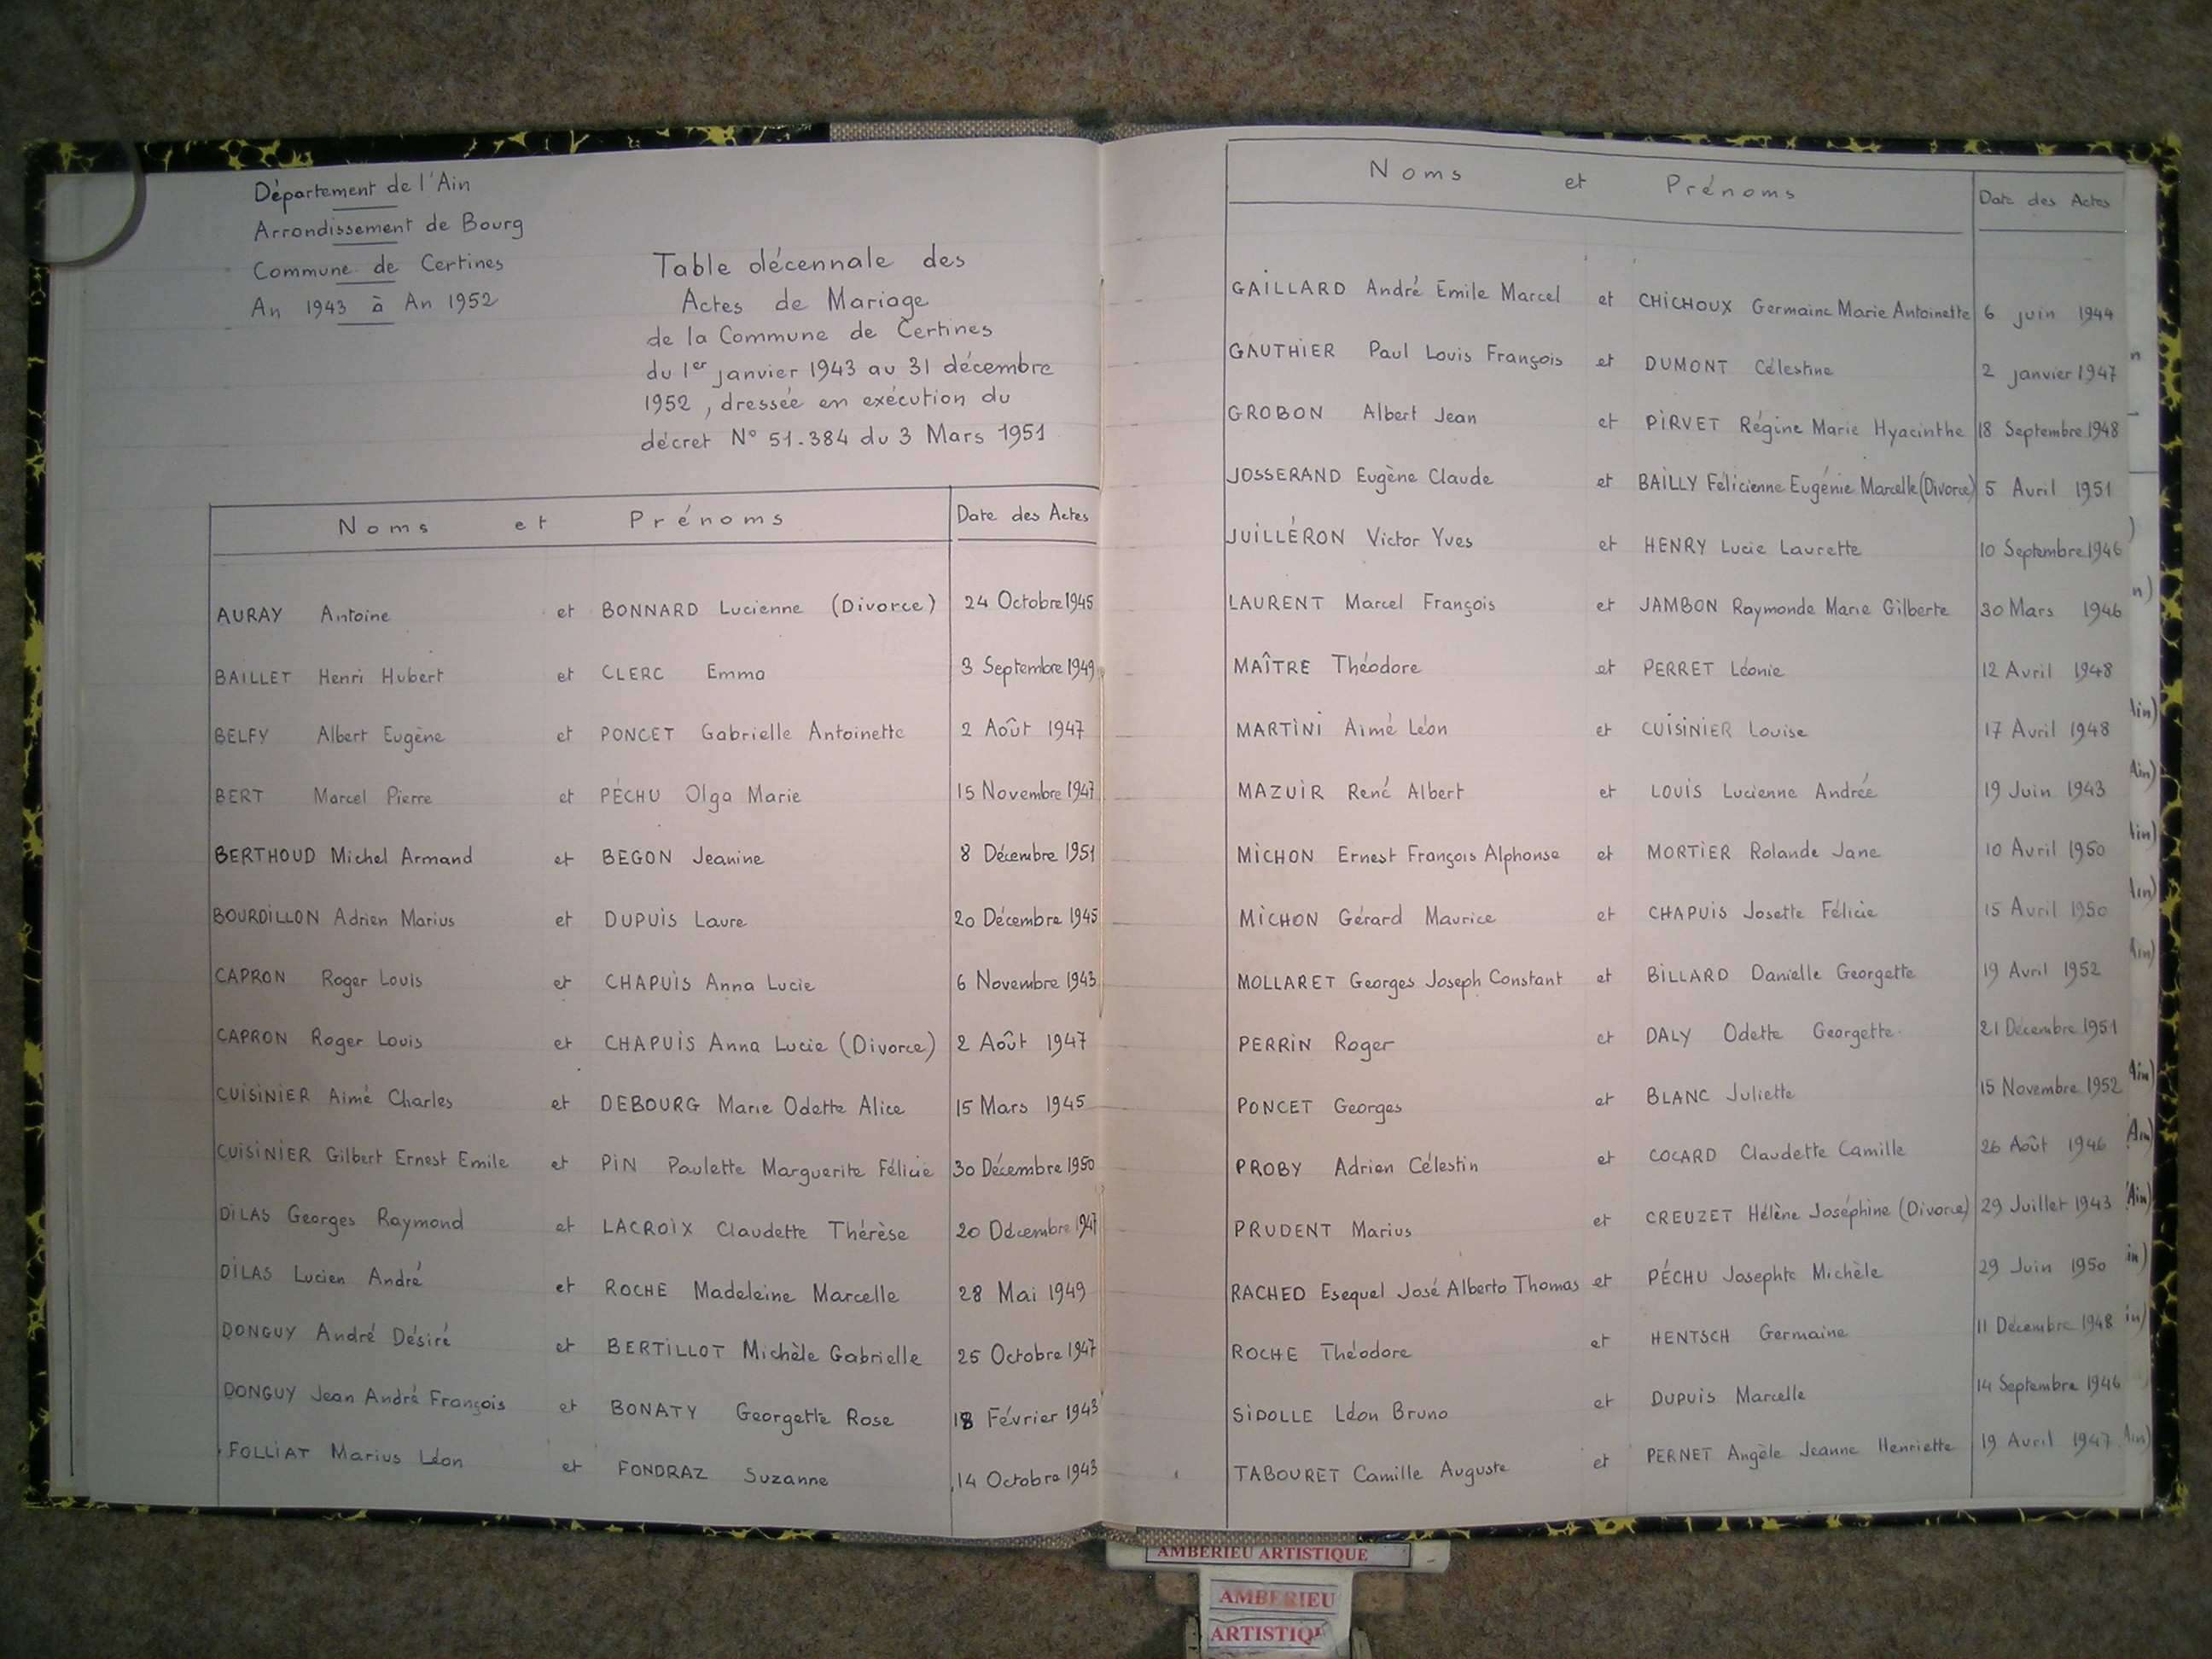 Département de l'Ain
Arrondissement de Bourg
Commune de Certines
An 1943 à An 1952
Table décennale des
Actes de Mariage
de la Commune de Certines
du 1er janvier 1943 au 31 décembre
1952, dressée en exécution du
décret N° 51.384 du 3 Mars 1951
Noms et Prénoms Date des Actes
AURAY Antoine et BONNARD Lucienne (Divorce) 24 Octobre 1945
BAILLET Henri Hubert et CLERC Emma 3 Septembre 1949
BELFY Albert Eugène et PONCET Gabrielle Antoinette 2 Août 1947
BERT Marcel Pierre et PÉCHU Olga Marie 15 Novembre 1947
BERTHOUD Michel Armand et BEGON Jeanine 8 Décembre 1951
BOURDILLON Adrien Marius et DUPUIS Laure 20 Décembre 1945
CAPRON Roger Louis et CHAPUIS Anna Lucie 6 Novembre 1943
CAPRON Roger Louis et CHAPUIS Anna Lucie (Divorce) 2 Août 1947
CUISINIER Aimé Charles et DEBOURG Marie Odette Alice 15 Mars 1945
CUISINIER Gilbert Ernest Emile et PIN Paulette Marguerite Félicie 30 Décembre 1950
DILAS Georges Raymond et LACROIX Claudette Thérèse 20 Décembre 1947
DILAS Lucien André et ROCHE Madeleine Marcelle 28 Mai 1949
DONGUY André Désiré et BERTILLOT Michèle Gabrielle 25 Octobre 1947
DONGUY Jean André François et BONATY Georgette Rose 18 Février 1943
FOLLIAT Marius Léon et FONDRAZ Suzanne 14 Octobre 1943
Noms et Prénoms Date des Actes
GAILLARD André Emile Marcel et CHICHOUX Germaine Marie Antoinette 6 juin 1944
GAUTHIER Paul Louis François et DUMONT Célestine 2 janvier 1947
GROBON Albert Jean et PIRVET Régine Marie Hyacinthe 18 Septembre 1948
JOSSERAND Eugène Claude et BAILLY Félicienne Eugénie Marcelle (Divorce) 5 Avril 1951
JUILLÉRON Victor Yves et HENRY Lucie Laurette 10 Septembre 1946
LAURENT Marcel François et JAMBON Raymonde Marie Gilberte 30 Mars 1946
MAÎTRE Théodore et PERRET Léonie 12 Avril 1948
MARTINI Aimé Léon et CUISINIER Louise 17 Avril 1948
MAZUIR René Albert et LOUIS Lucienne Andrée 19 Juin 1943
MICHON Ernest François Alphonse et MORTIER Rolande Jane 10 Avril 1950
MICHON Gérard Maurice et CHAPUIS Josette Félicie 15 Avril 1950
MOLLARET Georges Joseph Constant et BILLARD Danielle Georgette 19 Avril 1952
PERRIN Roger et DALY Odette Georgette 21 Décembre 1951
PONCET Georges et BLANC Juliette 15 Novembre 1952
PROBY Adrien Célestin et COCARD Claudette Camille 26 Août 1946
PRUDENT Marius et CREUZET Hélène Joséphine (Divorce) 29 Juillet 1943
RACHED Esequel José Alberto Thomas et PÉCHU Josephte Michèle 29 Juin 1950
ROCHE Théodore et HENTSCH Germaine 11 Décembre 1948
SIDOLLE Léon Bruno et DUPUIS Marcelle 14 Septembre 1946
TABOURET Camille Auguste et PERNET Angèle Jeanne Henriette 19 Avril 1947
AMBERIEU ARTISTIQUE
AMBERIEU
ARTISTIQU